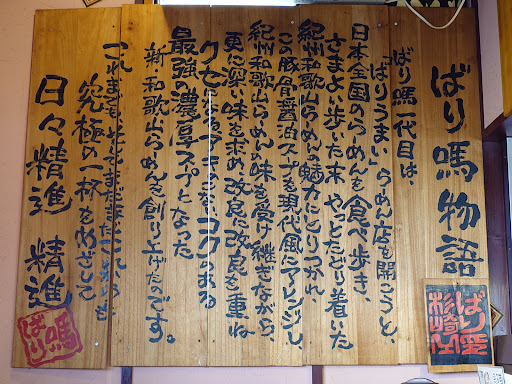 ばり嗎物語
ばり嗎一代目は、
「ばりうまい」らーめん店を開こうと、
日本全国のらーめんを食べ歩き、
さまよい歩いた末、やっとたどり着いた
紀州和歌山らーめんの魅力にとりつかれ、
この豚骨醤油スープを現代風にアレンジし
紀州和歌山らーめんの味を受け継ぎながら、
更に深い味を求め改良に改良を重ね
クセになるアキのこないコクのある
最強の濃厚スープとなった
新・和歌山らーめんを創り上げたのです。
これまでも、そしてまだまだこれからも
究極の一杯をめざして
日々精進 精進
ばり嗎